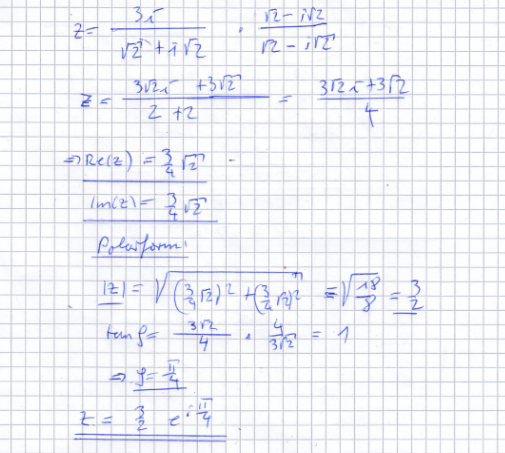 z = 3i / (√2 + i√2) · (√2 - i√2) / (√2 - i√2)
z = (3√2i + 3√2) / (2 + 2) = (3√2i + 3√2) / 4
⇒ Re(z) = 3/4 √2
Im(z) = 3/4 √2
Polarform:
|z| = √((3/4 √2)² + (3/4 √2)²) = √(18/8) = 3/2
tan φ = 3√2/4 · 4/3√2 = 1
⇒ φ = π/4
z = 3/2 e^(i π/4)